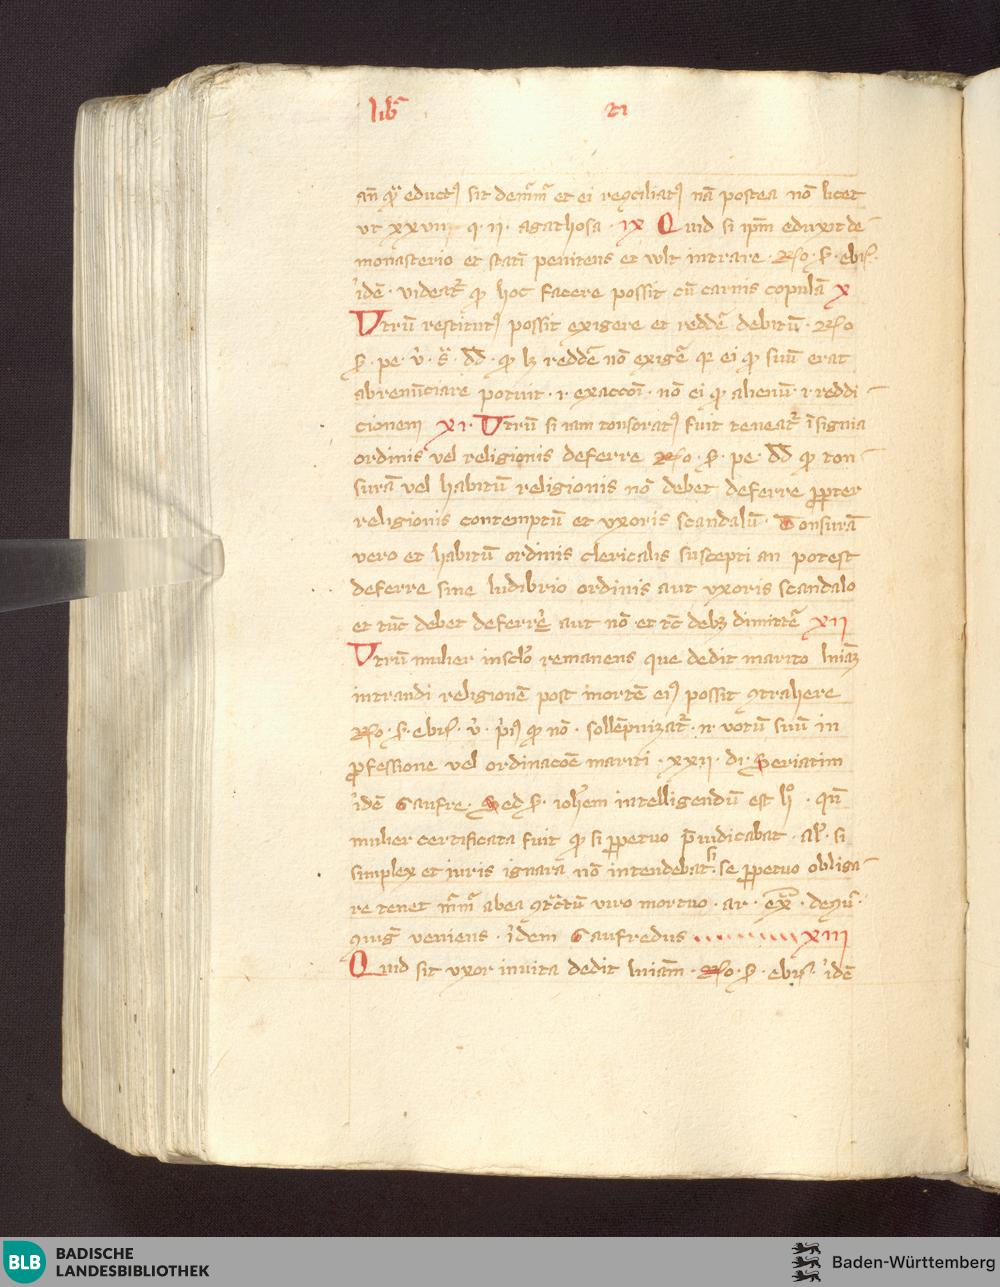 libr̄ vi
an̄ qᷓ eductꝰ sit dem̄m̄ et ei recōciliatꝰ nā postea nō licet
vt xxvii q. ii. agathosa. ix Quid si ip̄m eduxit de
monasterio et statī penitens et wlt intrare. Rſo. s. ebrſ.
idē. videat᷑ qꝫ hoc facere possit cū carnis copulā x
Vtrū restitutꝰ possit exigere et reddē debitū. Rſo
s. pe. v̓. s̄. dd̄. qꝫ lꝫ reddē nō exigē qꝛ ei qꝫ suū erat
abrenūciare potuit. i. exaccōi. nō ei qꝫ alienū. i. reddi
cionem xi. Vtrū si iam tonsoratꝰ fuit teneat᷑ īsignia
ordinis vel religionis deferre Rſo. s. pe. dd̄ qꝫ ton
surā vel habitū religionis nō debet deferre ꝓpter
religionis contemptū et vxoris scandalū. Tonsurā
vero et habitū ordinis clericalis suscepti an potest
deferre sine ludibrio ordinis aut vxoris scandalo
et tūc debet deferre aut nō et tc̄ debꝫ dimittē xii
Vtrū mulier in sclo̓ remanens que dedit marito lniaꝫ
intrandi religionē post mortē eiꝰ possit ꝯtrahere
Rſo. s. ebrſ. v̓. p̓s qꝫ nō. sollēpnizat᷑. n. votū suū in
ꝓfessione vel ordinacōe mariti. xxii. di. Seriatim
idē Gaufre. Sed s. ioh̓em intelligendū est h̓. qn̄
mulier certificata fuit qꝫ si ꝑpetuo p̄iudicabat. al̓. si
simplex et iuris ignara nō intendebat. se ꝑpetuo obliga
re tenet m̄m̄ ab ea ꝯtc̄tū viro mortuo. ar. ex̄. de ꝯū.
ꝯiug̓ veniens. idem Gaufredus xiii
Quid sit vxor inuita dedit lniam̄. Rſo. s. ebrſ. idē
BLB BADISCHE
LANDESBIBLIOTHEK
Baden-Württemberg